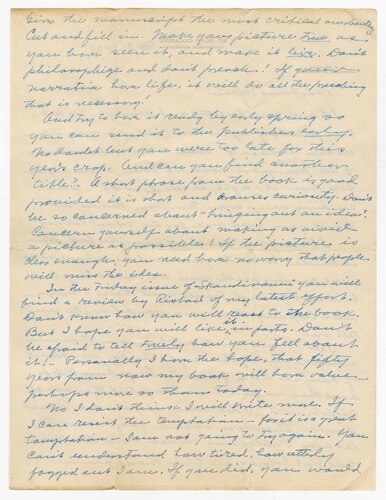 Give the manuscript the most critical overhauling
Cut and fill in. Make your picture true as
you have seen it, and make it live. Don't
philosophize and don't preach! If your
narrative has life, it will do all the preaching
that is necessary!
And try to have it ready by early spring so
you can send it to the publishers early.
No doubt but you were too late for this
year's crop. And can you find another
title? A short phrase from the book is good
provided it is short and arouses curiosity. Don't
be so concerned about "bringing out an idea".
Concern yourself about making as vivid
a picture as possible! If the picture is
clear enough, you need have no worry that people
will miss the idea.
In the Friday issue of Skandinaven you will
find a review by Ristad of my latest effort.
Don't know how you will react to the book.
But I hope you will like it in parts. Don't
be afraid to tell freely how you feel about
it. — Personally I have the hope, that fifty
years from now my book will have value —
perhaps more so than today.
No I don't think I will write more. If
I can resist the temptation — for it is a great
temptation — I am not going to try again. You
can't understand how tired, how utterly
fagged out I am. If you did, you would